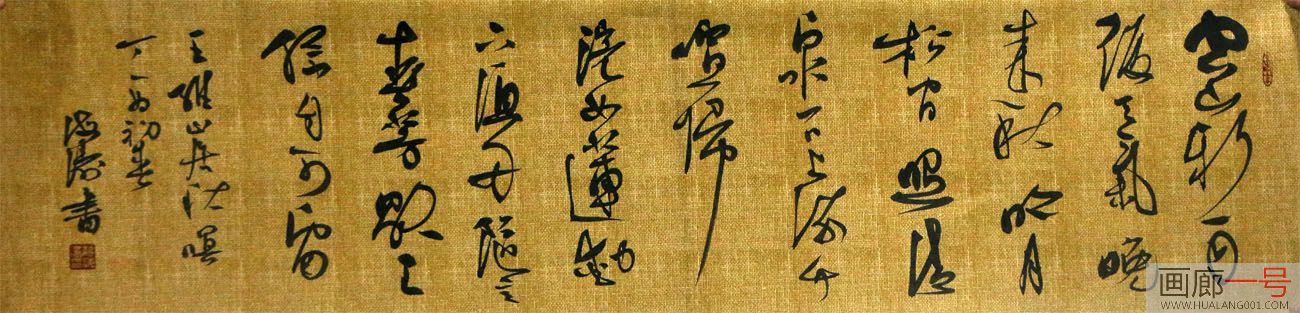 空山新雨
後天氣晚
来秋明月
松间照清
泉石上流竹
喧歸
浣女蓮動
下漁舟隨意
春芳歇王
孫自可留
王維山居秋暝
丁酉初春
海濤書
画廊一号
WWW.HUALANG001.COM